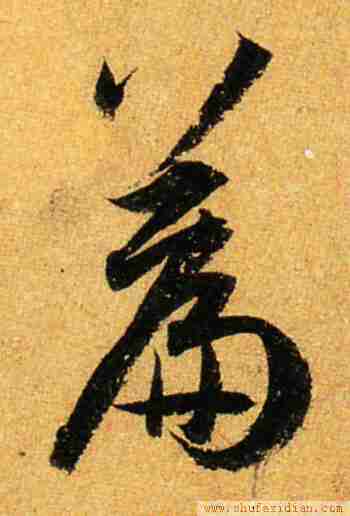 篇
www.shufazidian.com